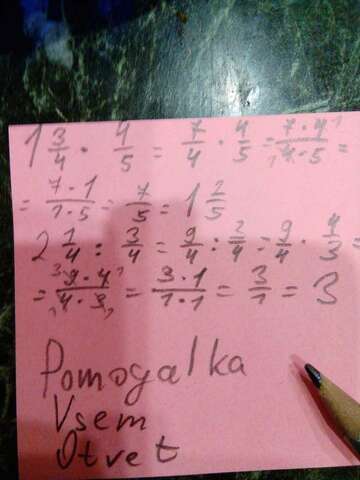 1 3/4 · 4/5 = 7/4 · 4/5 = 7·4/4·5 =
= 7·1/1·5 = 7/5 = 1 2/5
2 1/4 : 3/4 = 9/4 : 3/4 = 9/4 · 4/3 =
= 9·4/4·3 = 3·1/1·1 = 3/1 = 3
Pomogalka
Vsem
Otvet